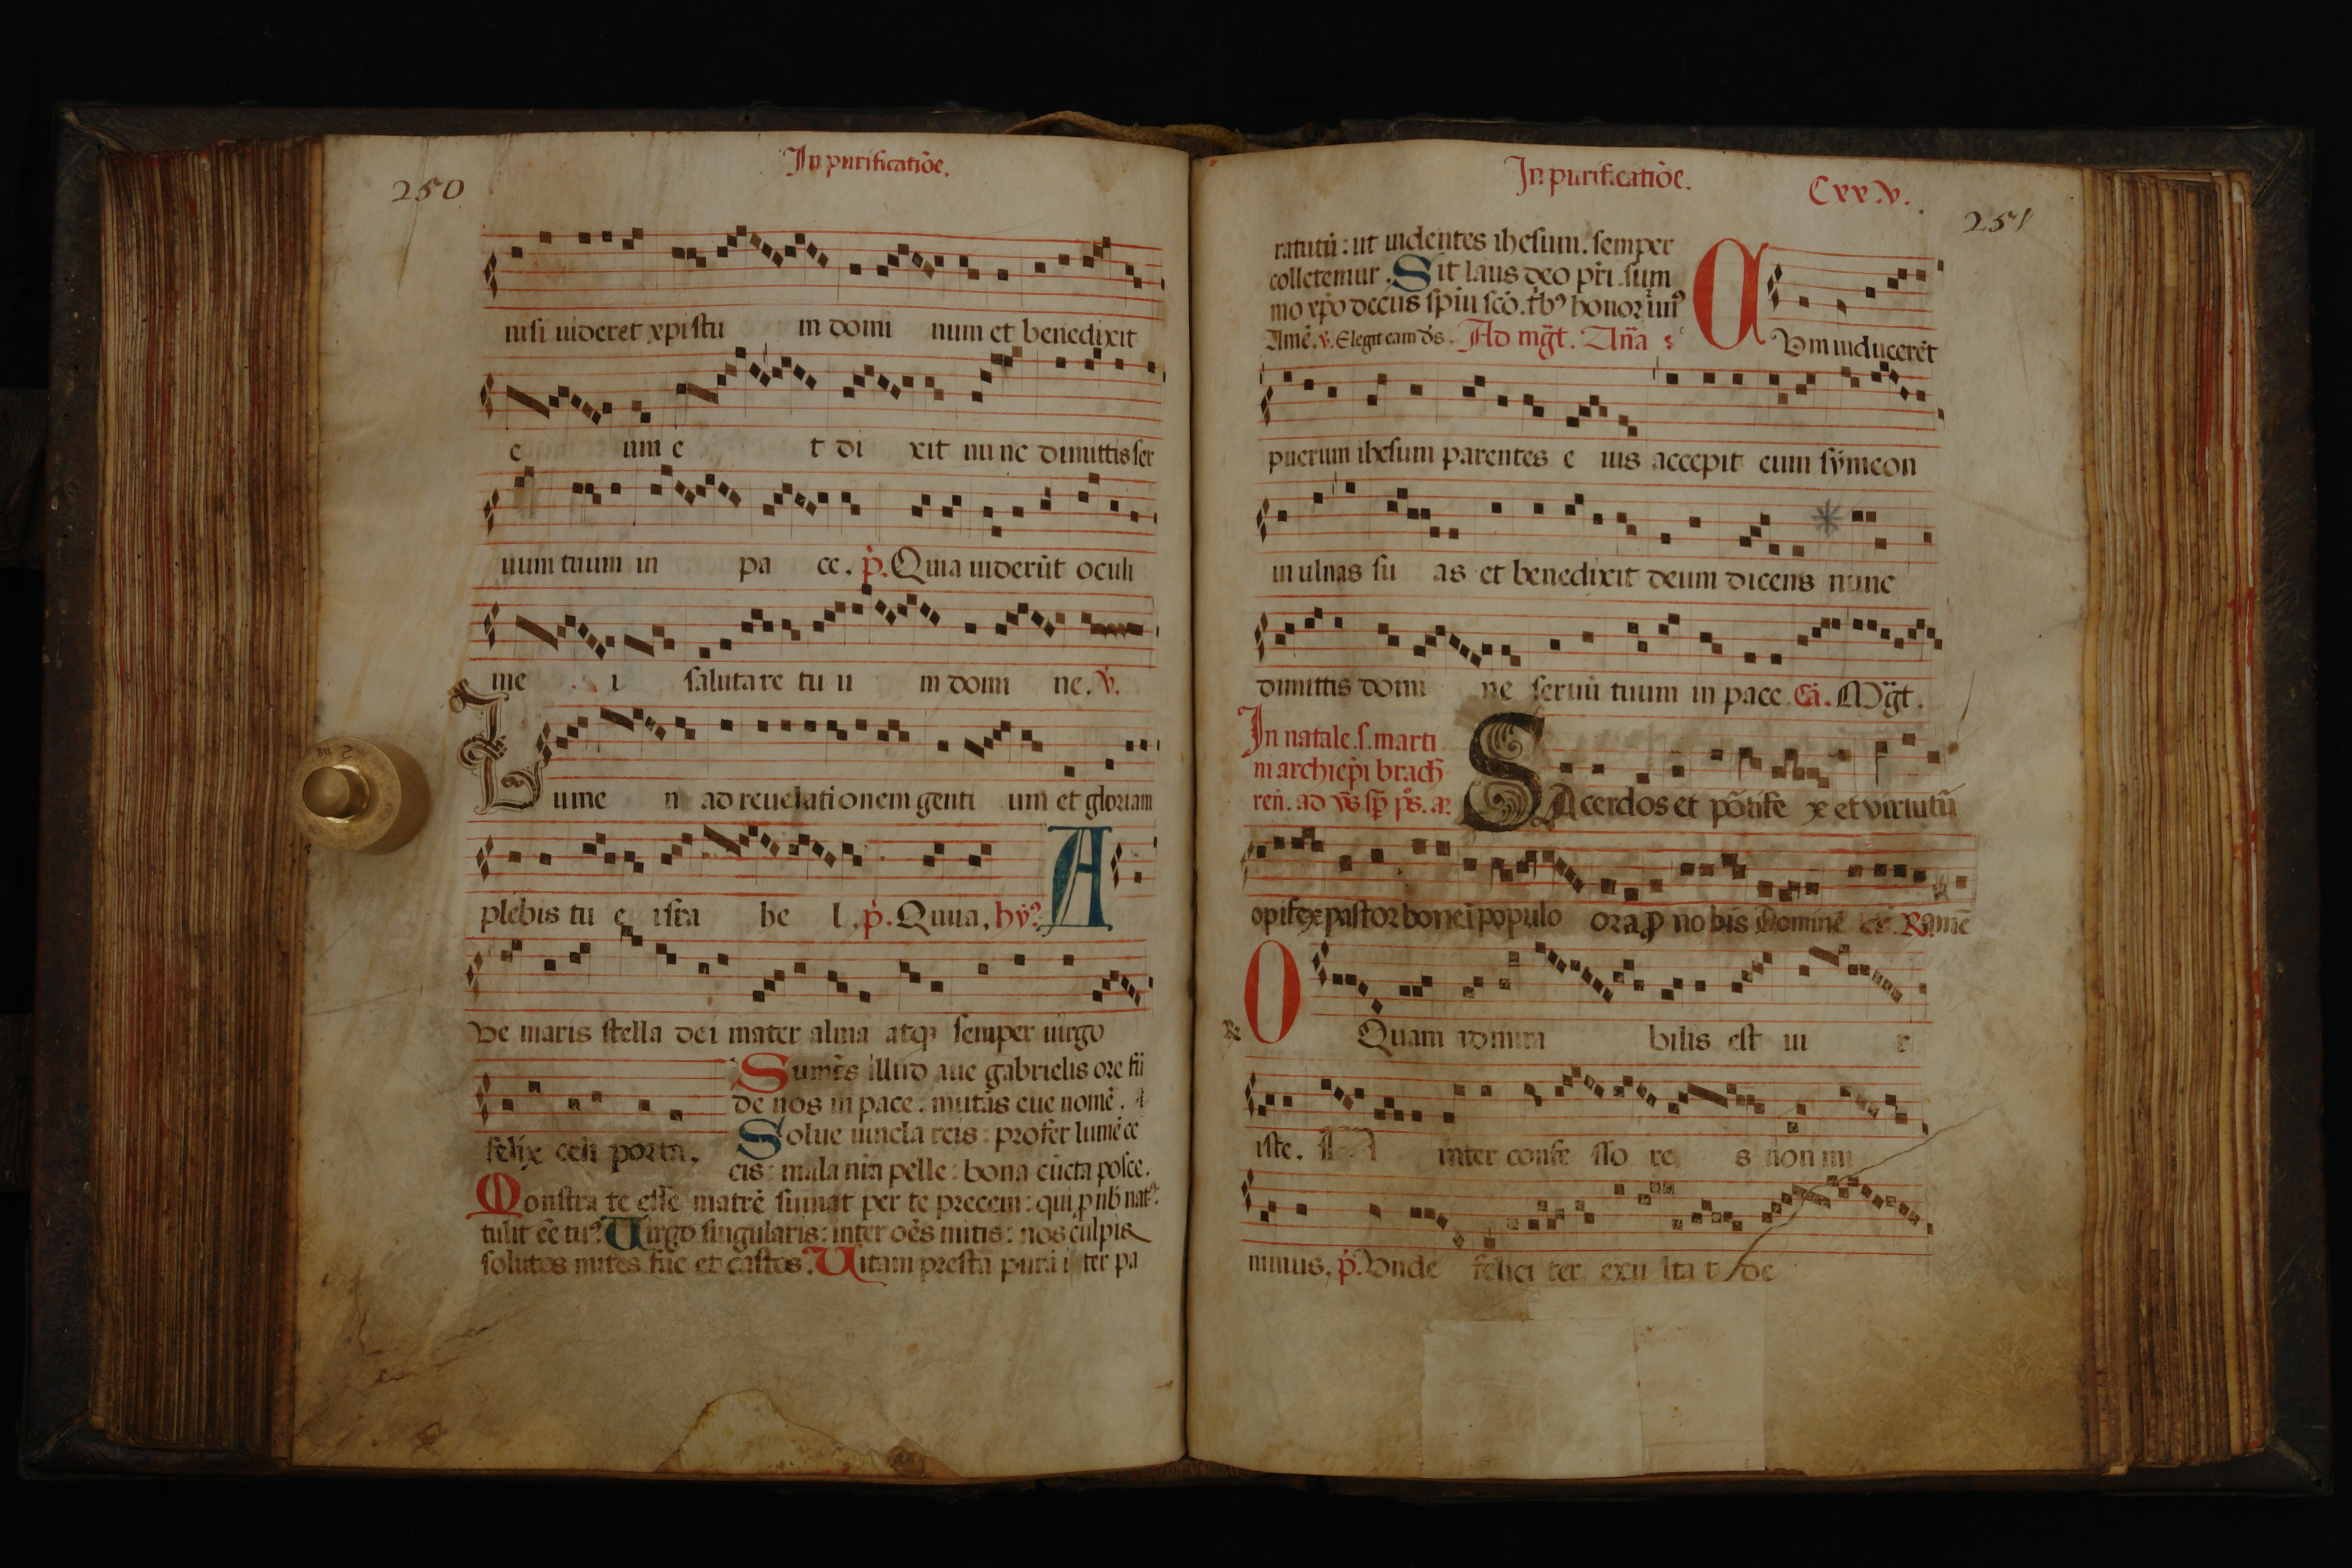 In purificatiõe.
250
nisi uideret xpistu m domi num et benedixit
e um e t di xit nunc dimittis ser
uum tuum in pa ce. p̃. Quia uiderũt oculi
me i salutare tu u m domi ne. v̓.
Lume n ad reuelationem genti um et gloriam
plebis tu e isra he l. p̃. Quia. hỹ⁹
AVe maris stella dei mater alma atq₃ semper uirgo
felix celi porta.
Sumẽs illud aue gabrielis ore fũ
de nos in pace: mutãs eue nomẽ.
Solue uincla reis: profer lumẽ ce
cis: mala nr̃a pelle: bona cũcta posce.
Monstra te esse matrẽ sumat per te precem: qui p nob̃ nat⁹
tulit eẽ tu⁹. Uirgo singularis: inter oẽs mitis: nos culpis
solutos mites fac et castos. Uitam presta purã iter pa
In purificatiõe.
Cxx.v.
251
ratutũ: ut uidentes ihesum. semper
colletemur. Sit laus deo pr̃i sum
mo xp̃o decus sp̃ui sc̃o. tb⁹ honor un⁹
Amẽ. v̓. Elegit eam dñs. Ad mg̃t. Añã
CVm inducerẽt
puerum ihesum parentes e ius accepit eum sẏmeon
in ulnas su as et benedixit deum dicens nunc
dimittis domi ne seruũ tuum in pace. Mg̃t.
In natale. s. marti
ni archiep̃i brach̃
ren̄. ad v̄s sp̄ p̃s. añ.
SAcerdos et põtife x et virtutũ
opifex pastor bone ĩ populo ora p̱ no bis dominũ R̃amẽ
R̃
O Quam admira bilis est ui r
iste. inter confe sso re s non mi
nimus. p̃. Vnde felici ter exu lta t de